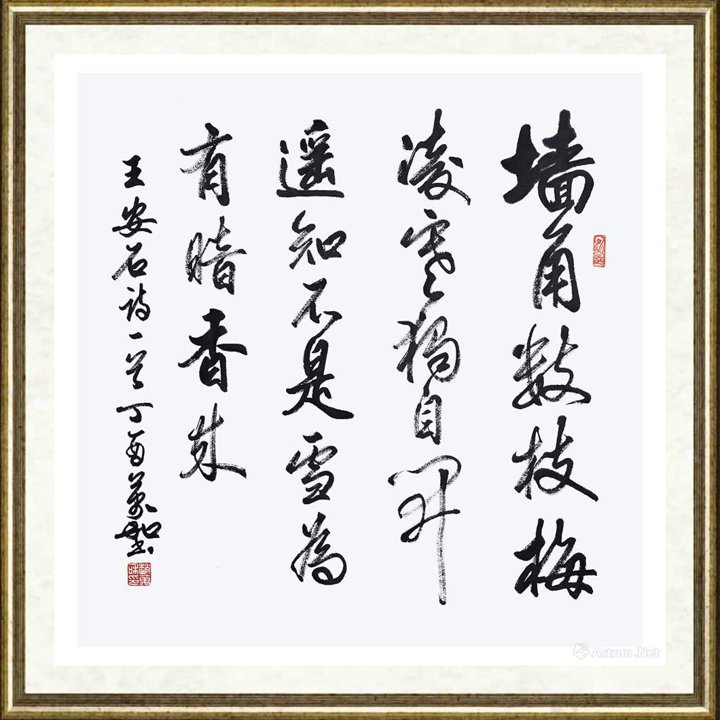 墙角数枝梅
凌寒独自开
遥知不是雪为
有暗香来
王安石诗一首丁酉
Artron.Net